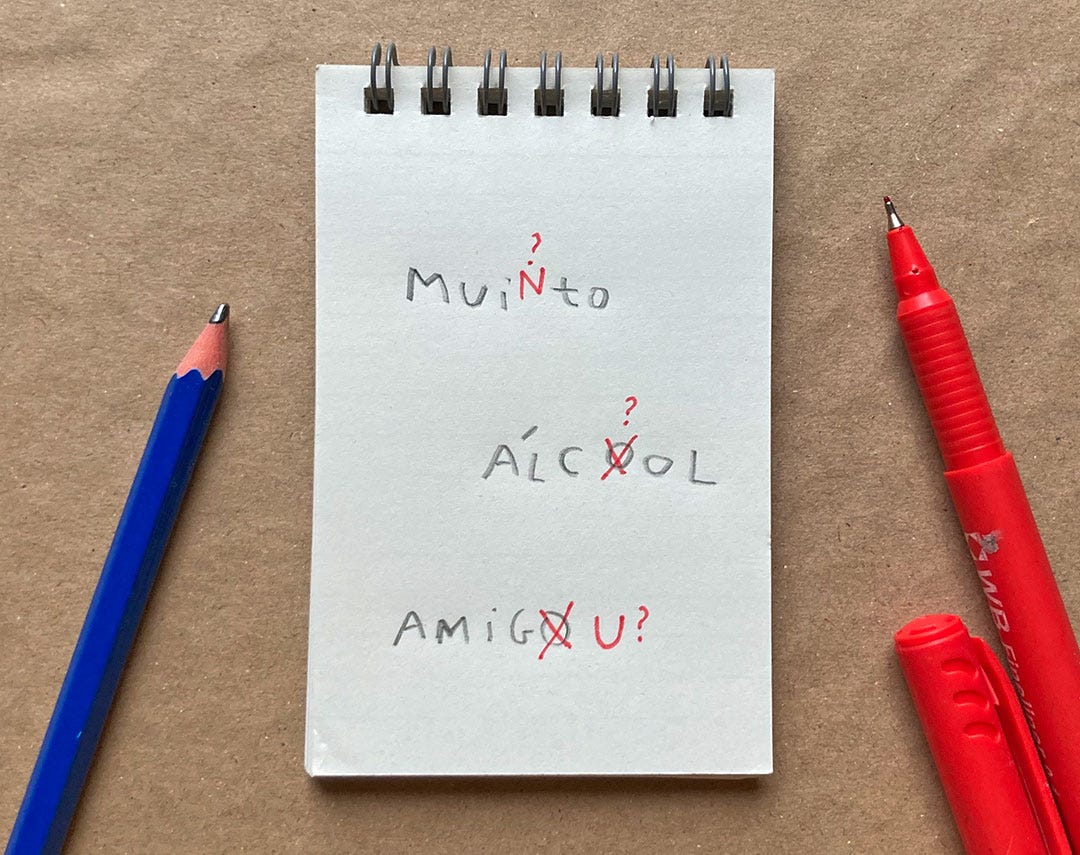 ?
MuiNto
?
ÁLCOOL
AMiGO U?
WB